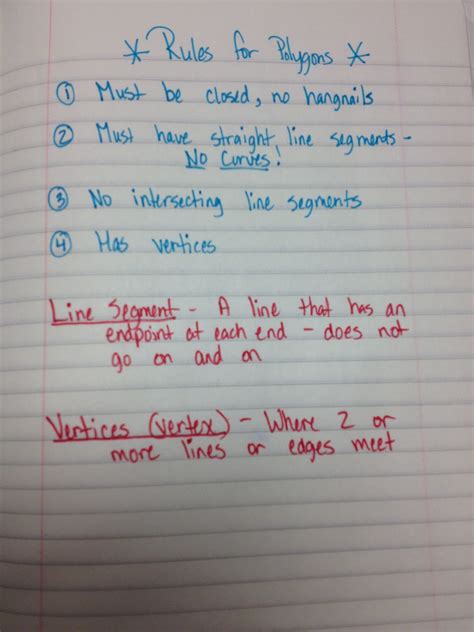 * Rules for Polygons *
① Must be closed, no hangnails
② Must have straight line segments -
No Curves!
③ No intersecting line segments
④ Has vertices
Line Segment - A line that has an
endpoint at each end - does not
go on and on
Vertices (vertex) - Where 2 or
more lines or edges meet